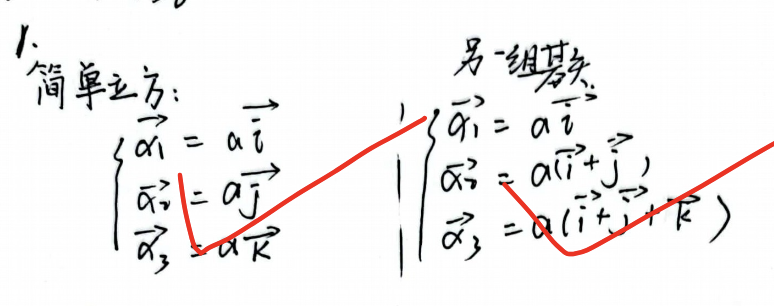 1.
简单立方:
$\begin{cases} \vec{a_1} = a\vec{i} \\ \vec{a_2} = a\vec{j} \\ \vec{a_3} = a\vec{k} \end{cases}$
另一组基矢:
$\begin{cases} \vec{a_1} = a\vec{i} \\ \vec{a_2} = a(\vec{i}+\vec{j}) \\ \vec{a_3} = a(\vec{i}+\vec{j}+\vec{k}) \end{cases}$